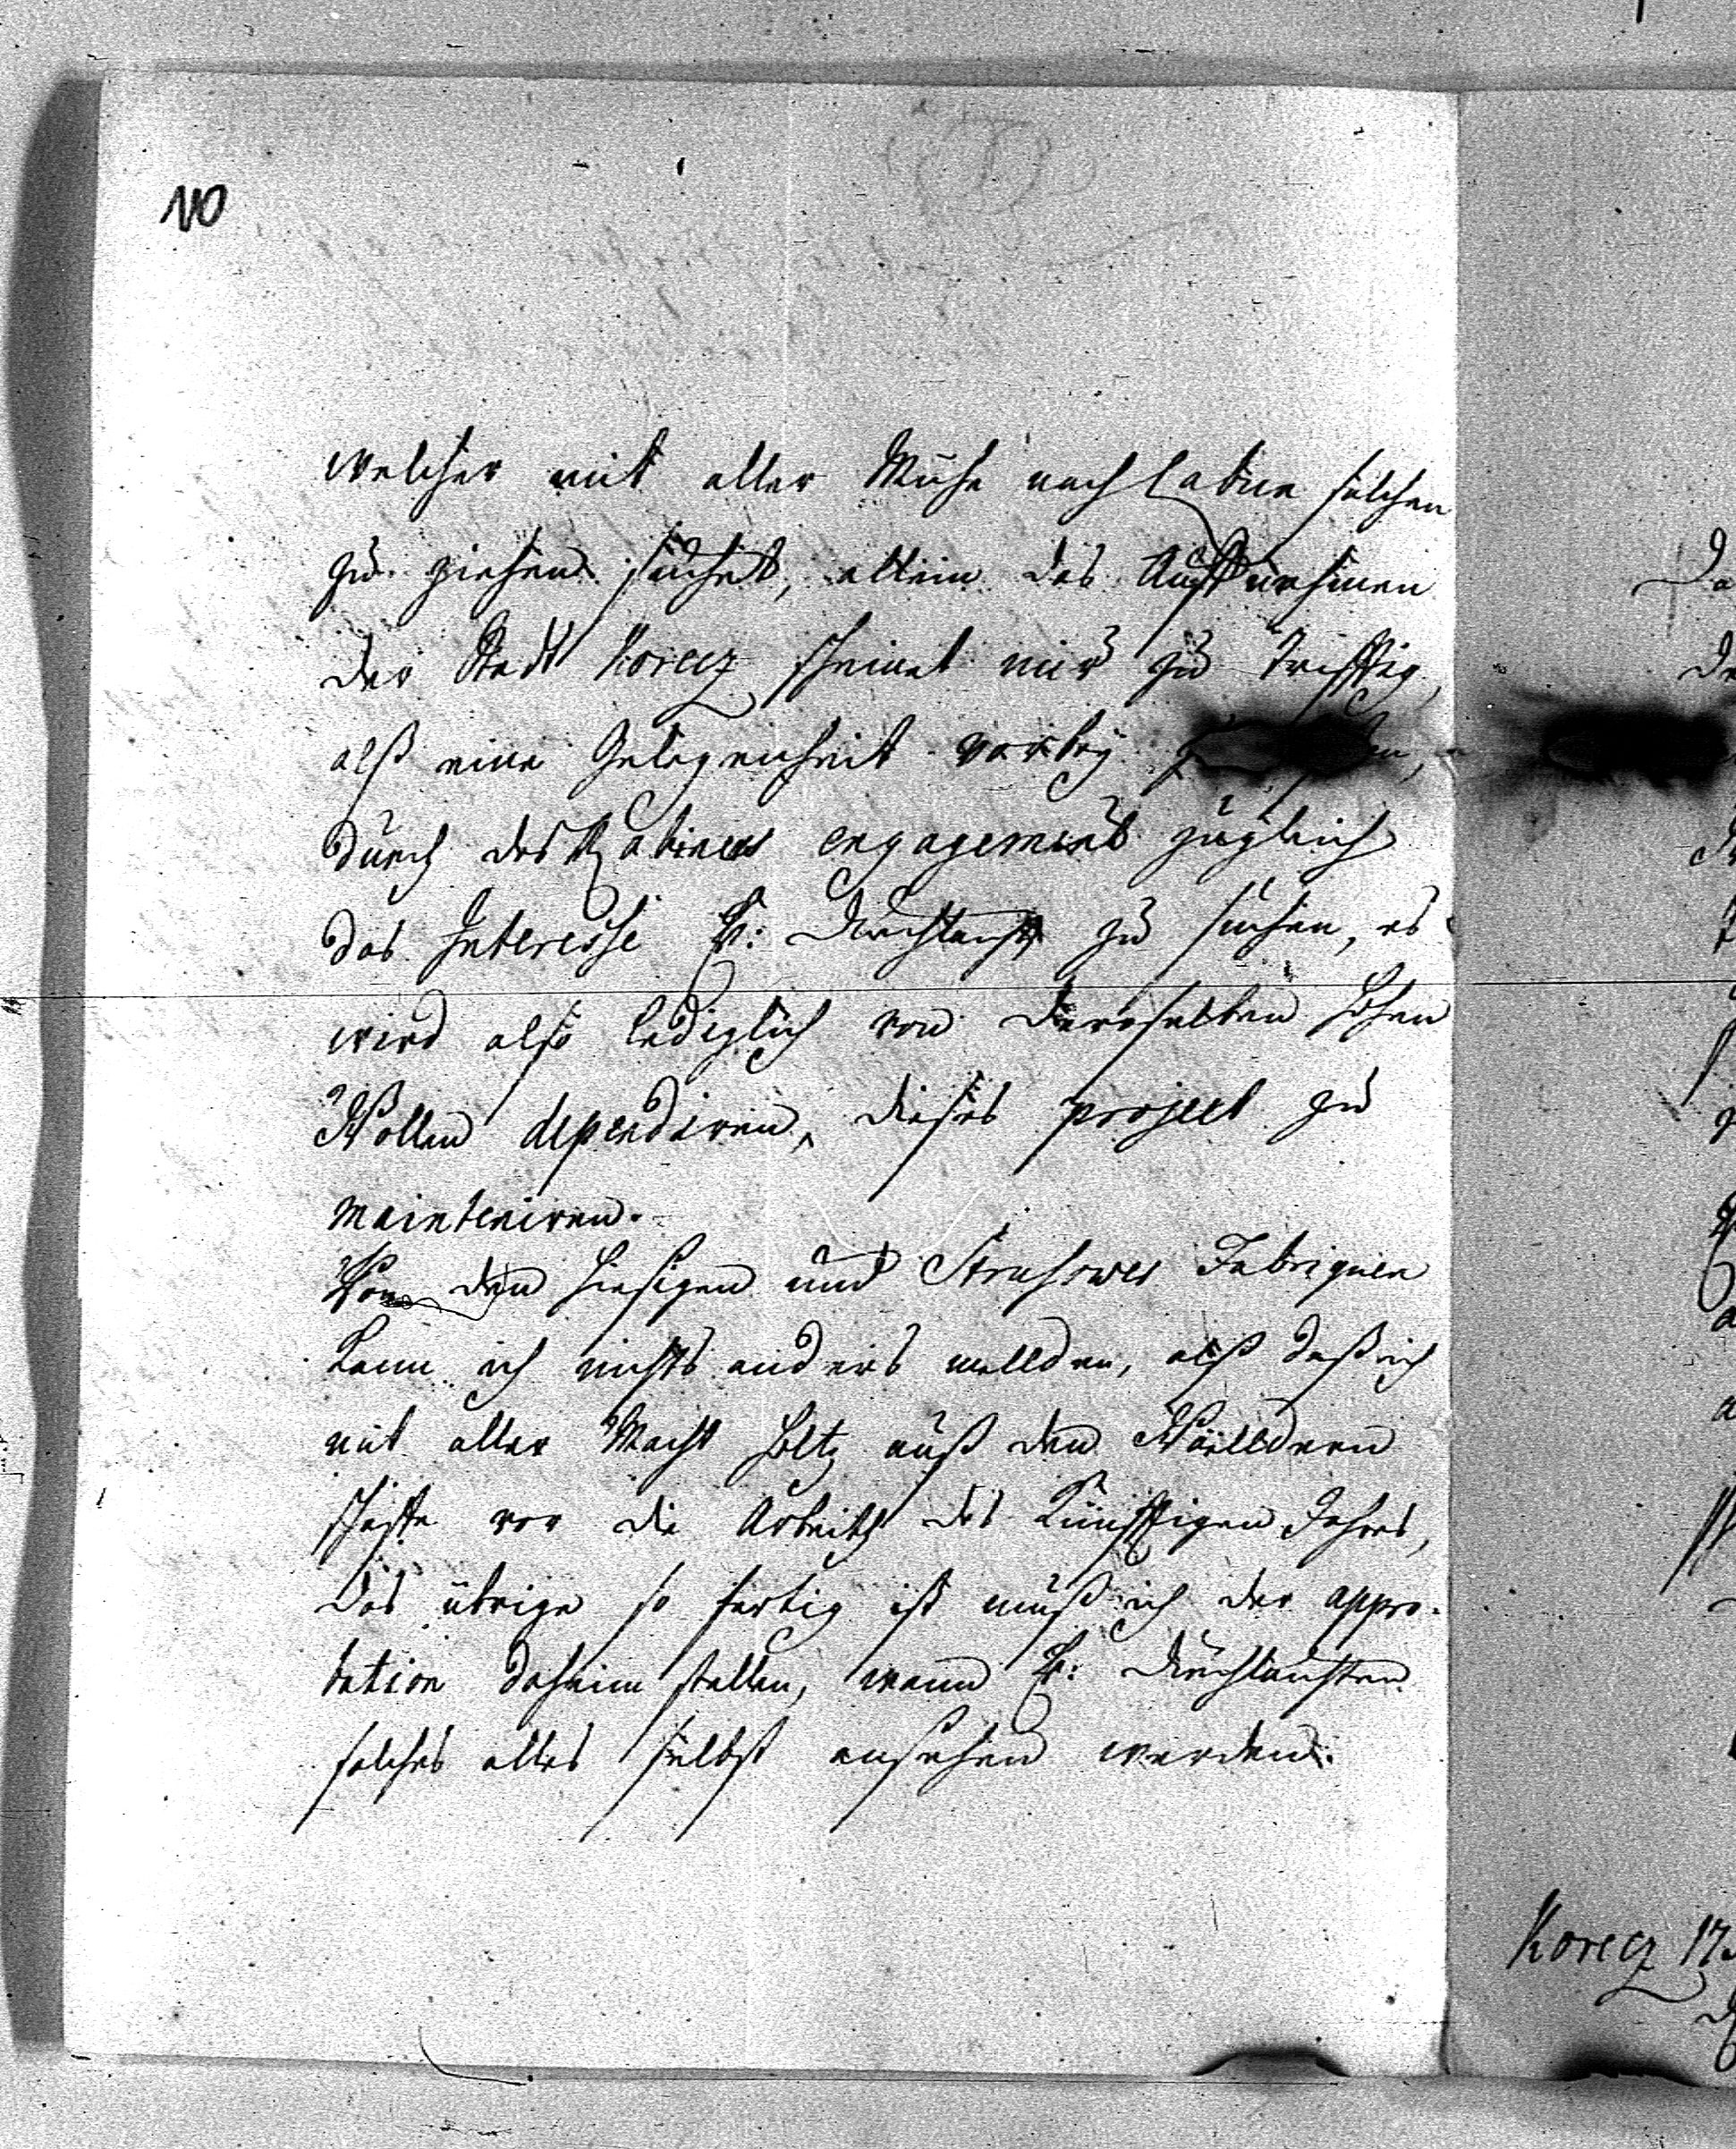 10
welcher mit aller Mühe nach Labun solchen
zu ziehen suchet, allein das Auffnehmen
der Stadt Korecz scheinet mir zu triftig,
alß eine Gelegenheit vorbey
durch des Rabiners engagement zugleich
das Interesse Er: Durchlaucht zu suchen, es
wird also lediglich von Deroselben hohen
Wollen dependiren, dieses project zu
mainteniren.
Von den hiesigen und Fabriquen
kann ich nichts anders mellden, alß daß ich
mit aller Macht Holtz auß den Wälldern
schaffe vor die Arbeith des künfftigen Jahres,
das übrige so fertig ist muß ich der appro-
bation daheim stellen, wann Er: Durchlauchten
solches alles selbst ansehen werden.
Da
Korecz 17